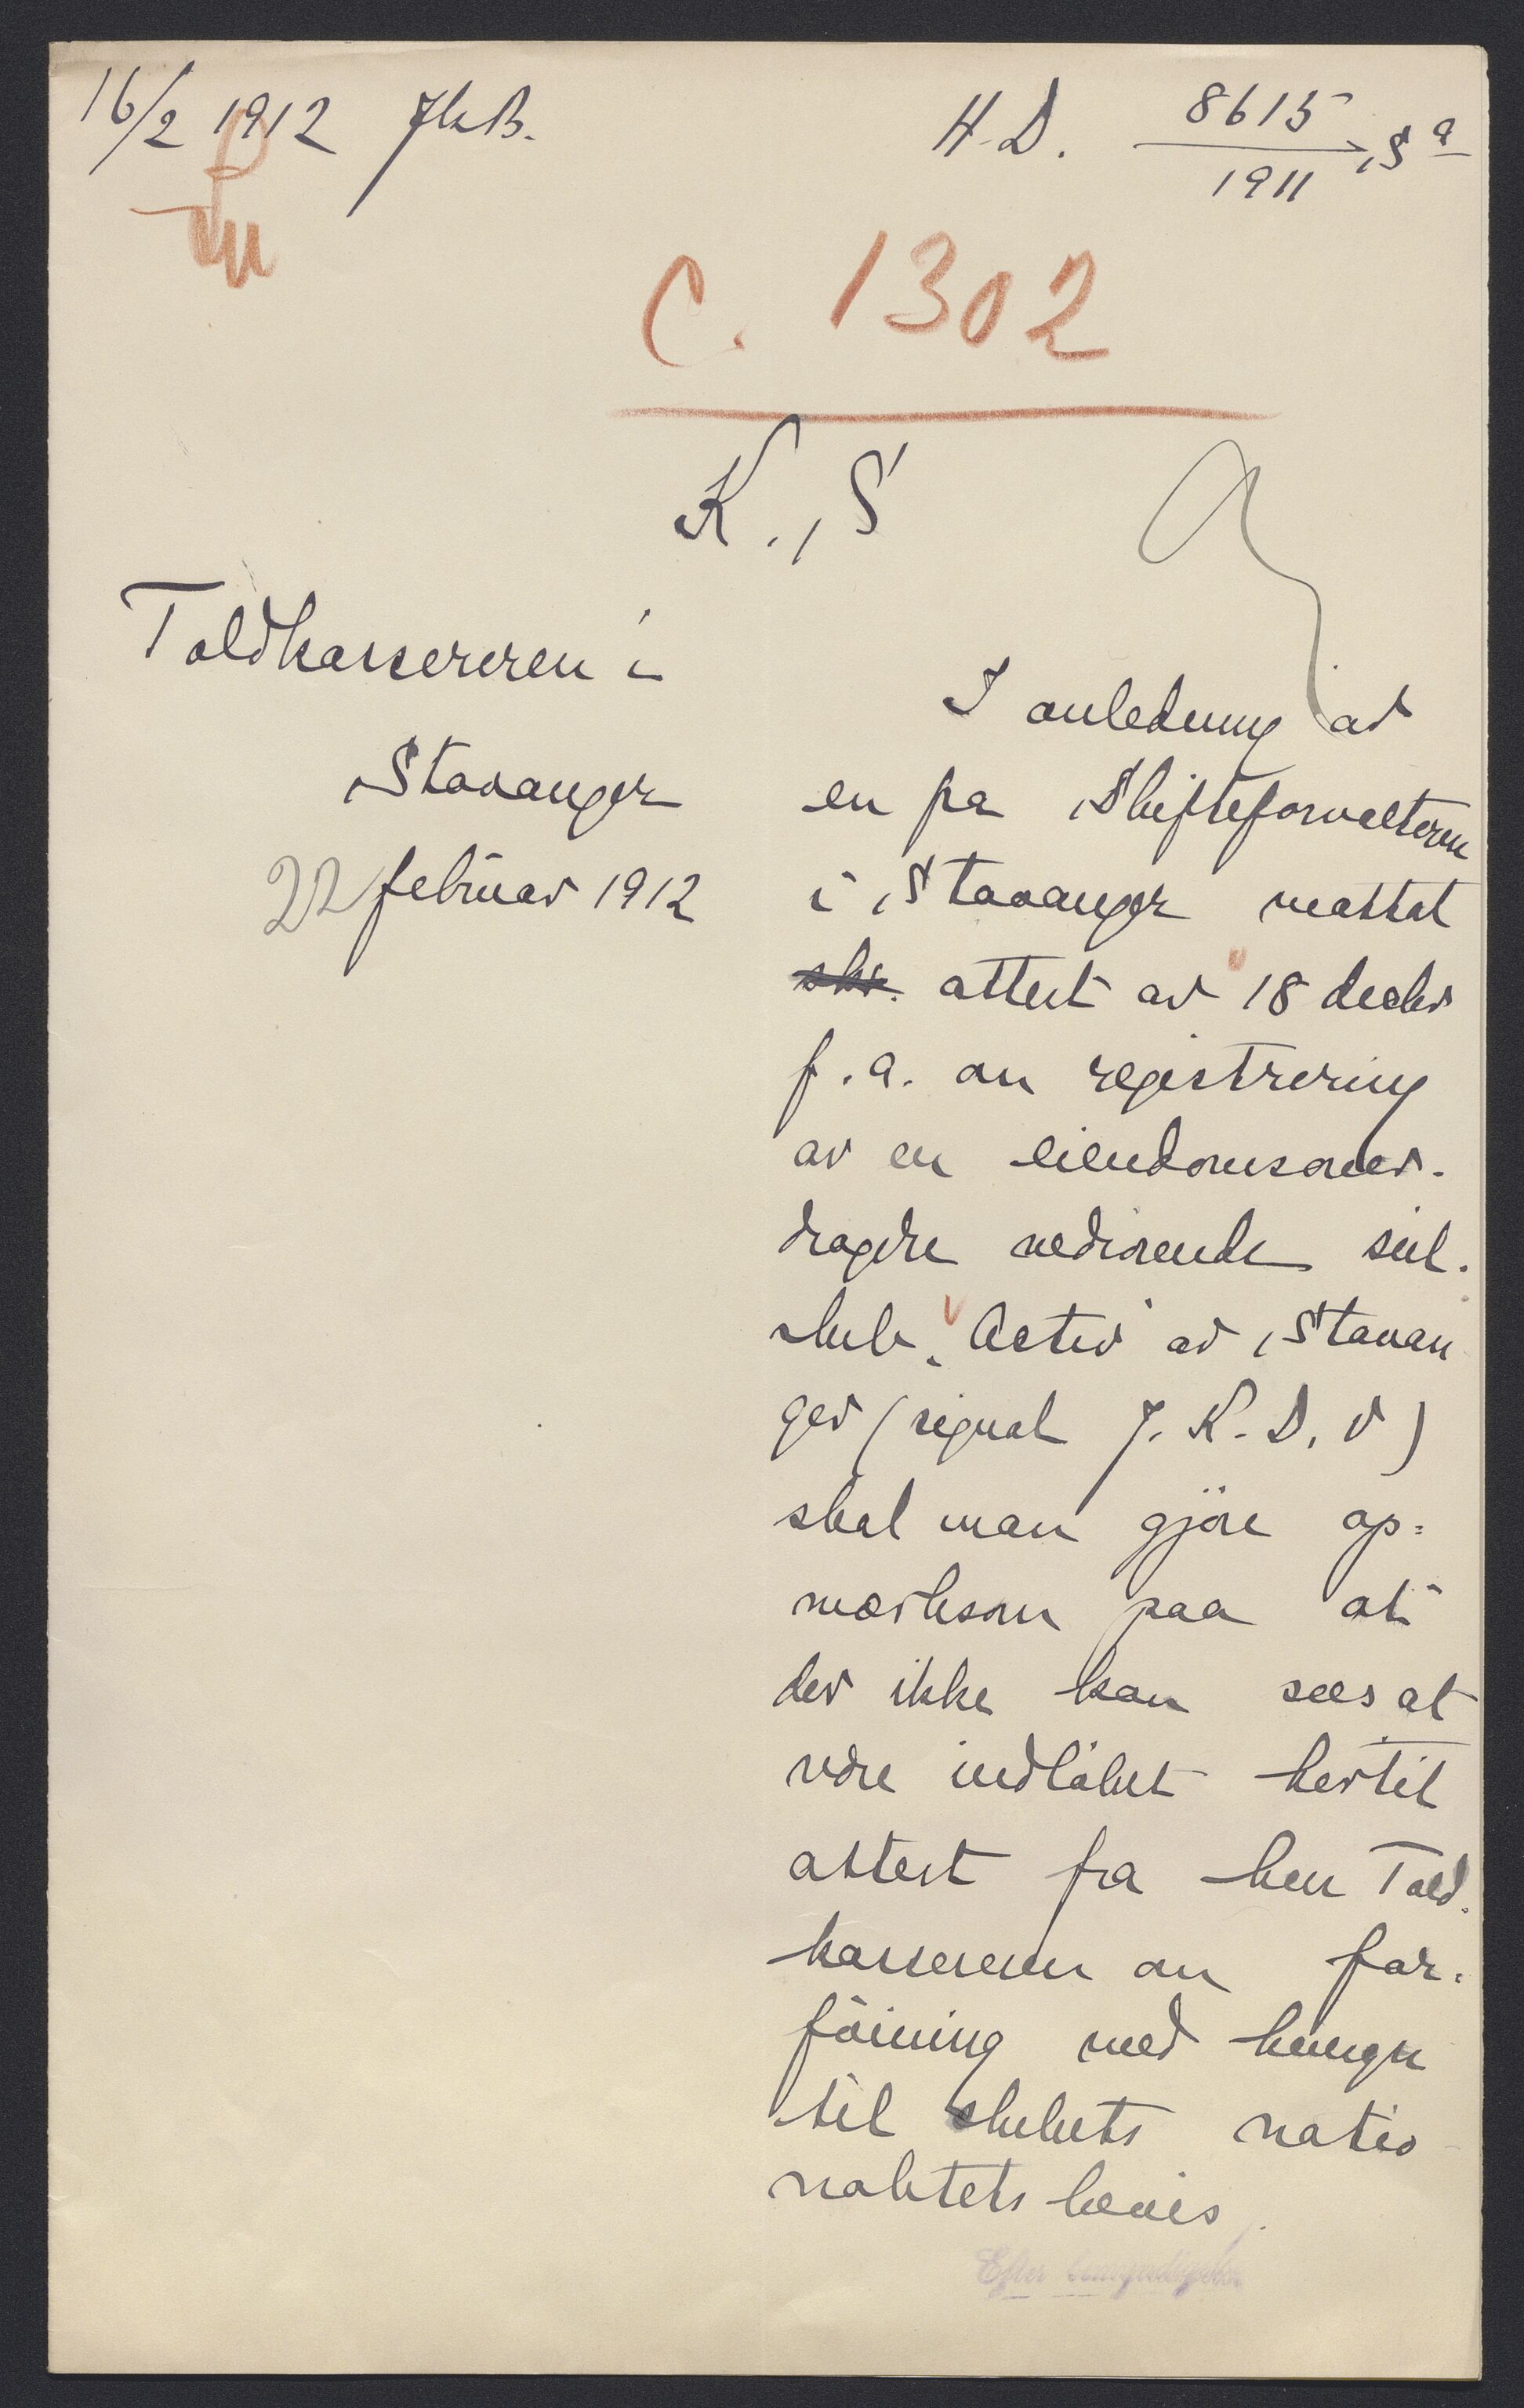 16/2 1912
H.D. 8615/1911, S a
C. 1302
K., S
Toldkassereren i
Stavanger
22 februar 1912
I anledning av
en fra Skifteforvalteren
i Stavanger mottat
skr. attest av 18 decbr
f.a. om registrering
av en eiendomsover-
dragelse vedrørende seil-
skib "Activ" av Stavan
ger (signal J.K.D.V)
skal man gjöre op=
merksom paa at
der ikke kan sees at
være indløbet hertil
attest fra herr Told-
kassereren om for-
föining med hensyn
til skibets natio
nalitetsbevis.
Efter bemyndigelse